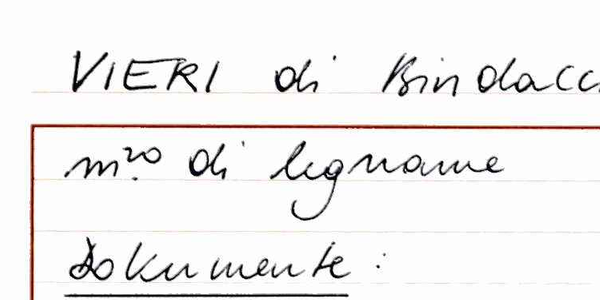 VIERI di Bindacc
m.ro di legname
Dokumente: